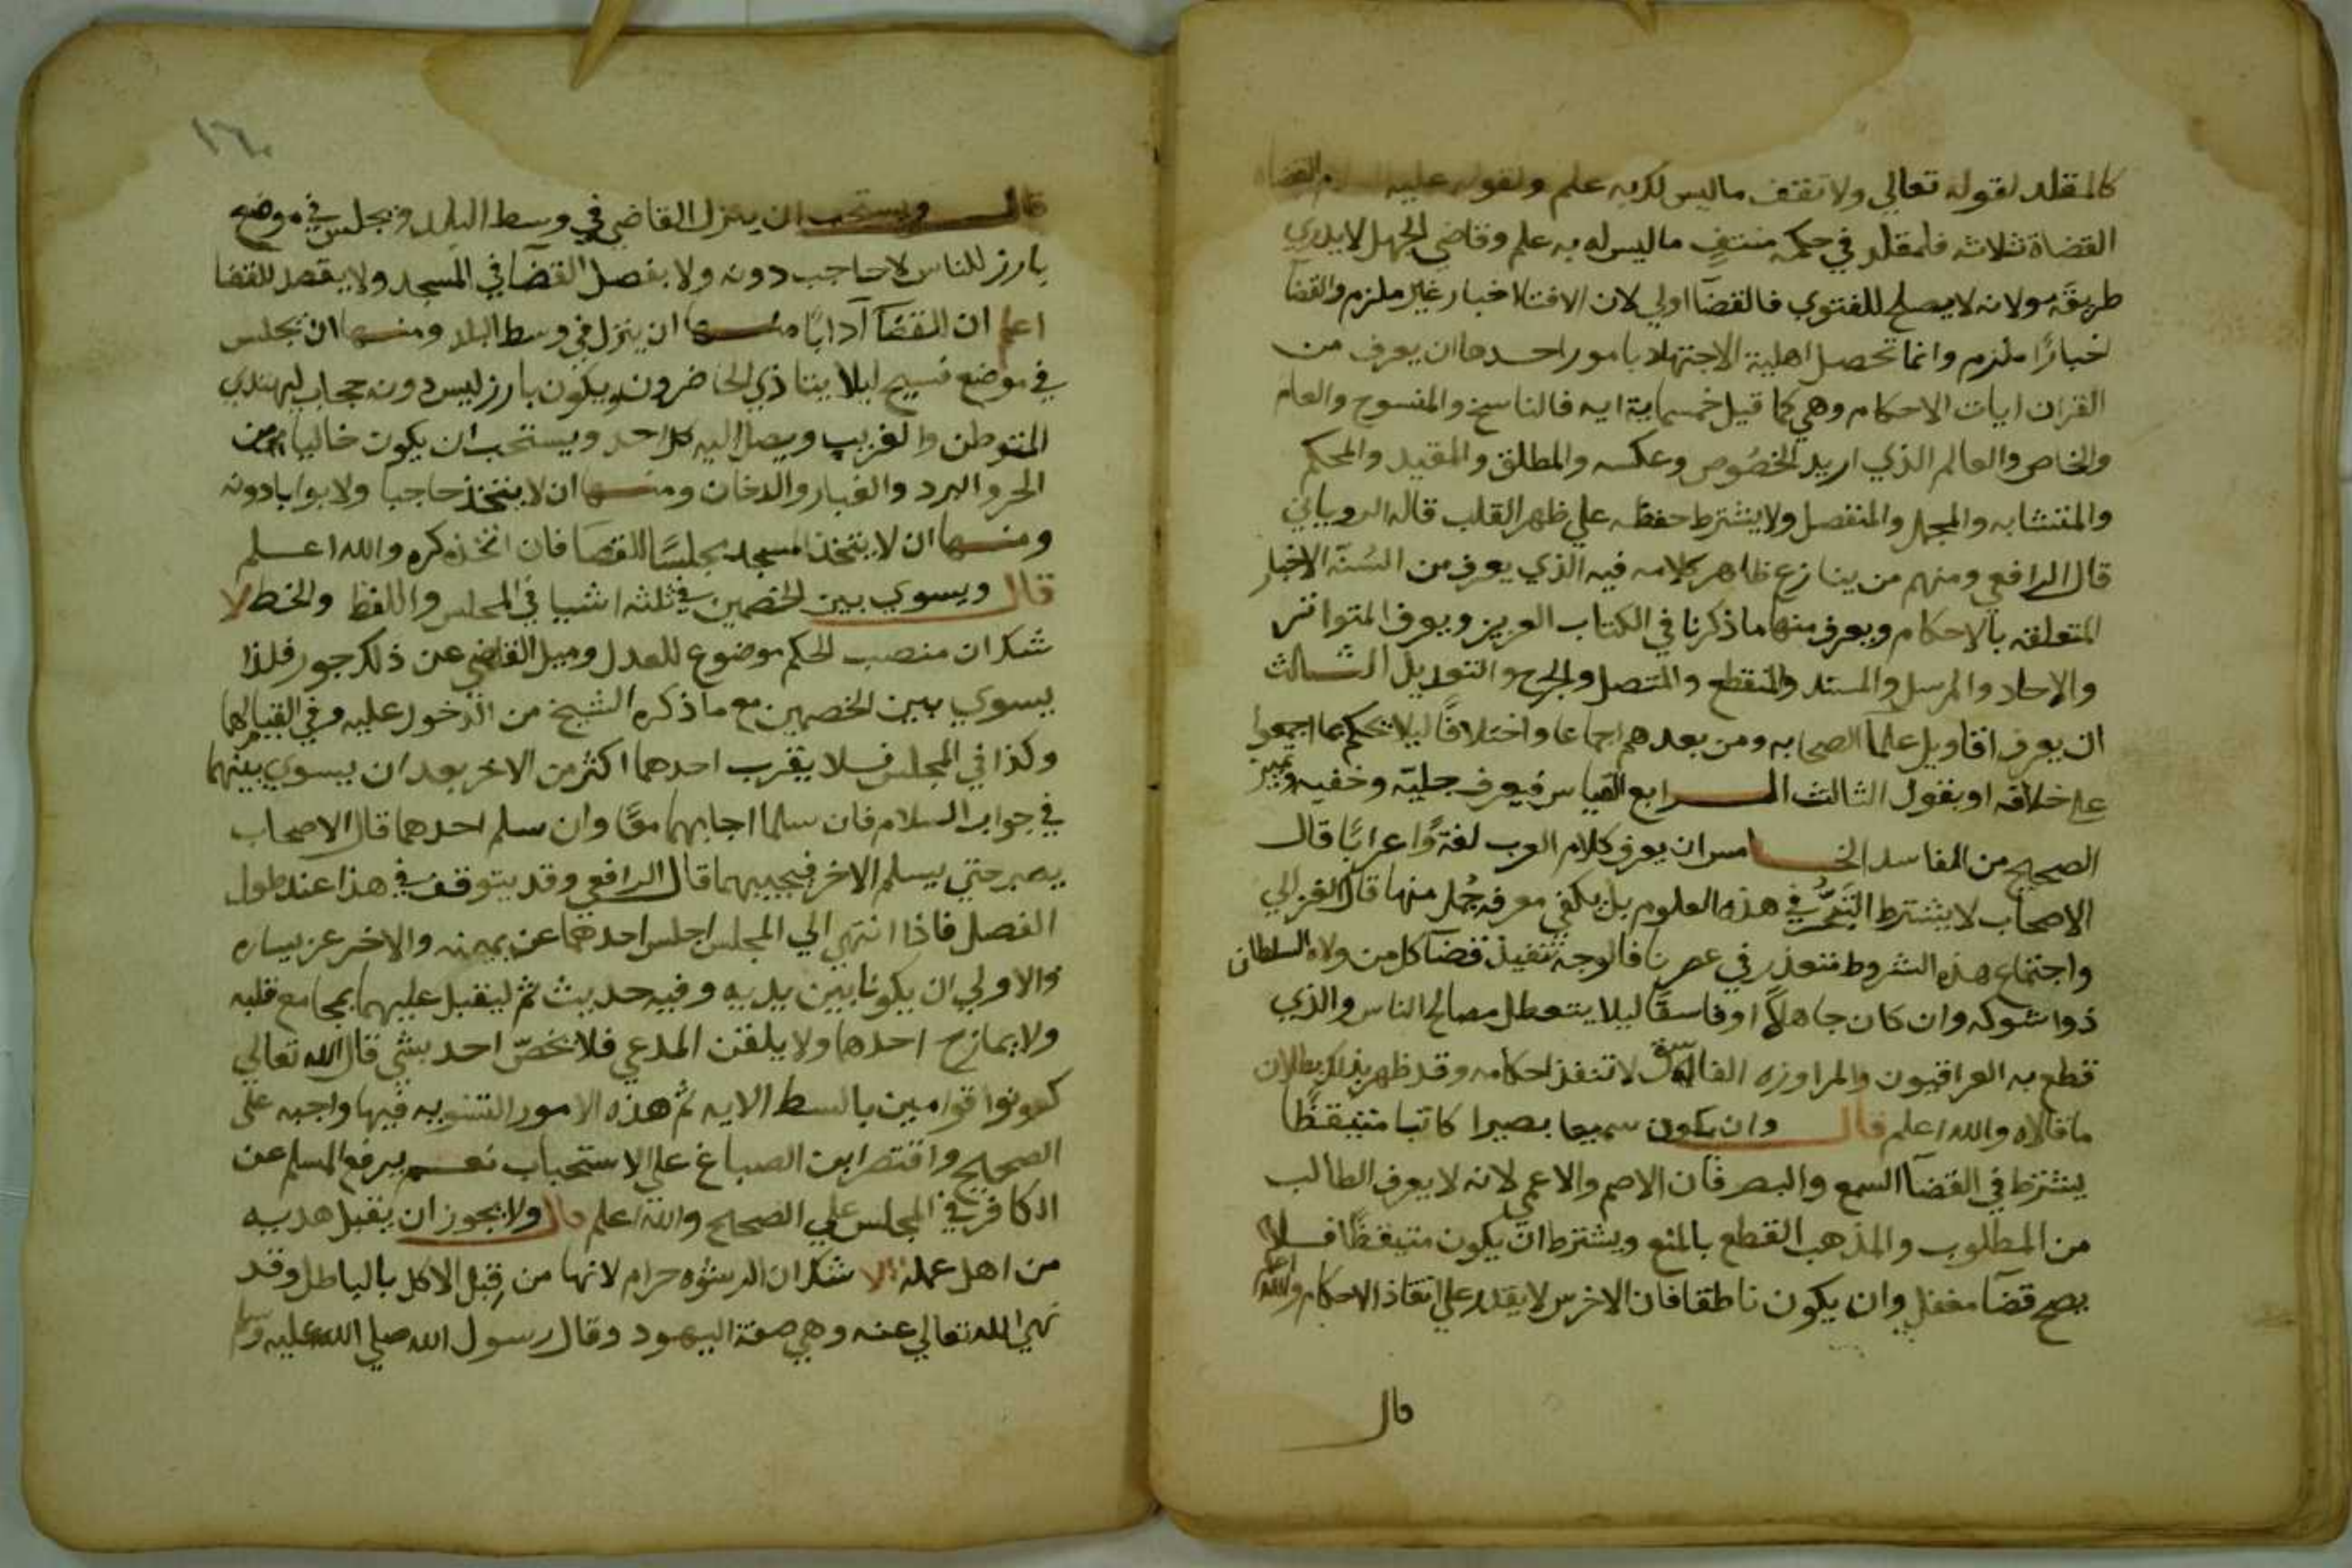 كالمقلد لقوله تعالي ولا تقتف ماليس لك به علم ولقوله عليه القضاه
القضاة ثلاثه فالمقلد في حكمه منتفٍ ما ليس له به علم وقاضي الجهل لا يدري
طريقه ولانه لا يصلح للفتوي فالقضآ اولي لان الافتا اخبار غير ملزم والقضآ
اخبارًا ملزم وانما تحصل اهلية الاجتهاد بامور احدها ان يعرف من
القران ايات الاحكام وهي كما قيل خمسماية ايه فالناسخ والمنسوخ والعام
والخاص والعالم الذي اريد الخصُوص وعكسه والمطلق والمقيد والمحكم
والمتشابه والمجمل والمنفصل ولا يشترط حفظه علي ظهر القلب قاله الروياني
قال الرافعي ومنهم من ينازع ظاهر كلامه فيه الذي يعرف من السُنّه الاخبار
المتعلقه بالاحكام ويعرف منها ما ذكرنا في الكتاب العزيز ويعرف المتواتر
والاحاد والمرسل والمسند والمنقطع والمتصل والجرح والتعديل الثالث
ان يعرف اقاويل علمآ الصحابه ومن بعدهم اجماعا واختلافًا ليلا يحكم بما اجمعوا
علي خلافه او بقول الثالث الرابع القياس فيعرف جليّه وخفيه وتميز
الصحيح من الفاسد الخامس ان يعرف كلام العرب لغةً واعرابًا قال
الاصحاب لا يشترط التبحُّر في هذه العلوم بل يكفي معرفه جُمل منها قال الغزالي
واجتماع هذه الشروط متعذر في عصرنا فالوجه تنفيذ قضآ كل من ولاه السلطان
ذوا شوكه وان كان جاهلاً او فاسقًا ليلا يتعطل مصالح الناس والذي
قطع به العراقيون والمراوزه الفاسق لا تنفذ احكامه وقد ظهر بذلك بطلان
ما قالاه والله اعلم قال وان يكون سميعا بصيرا كاتبا متيقظًا
يشترط في القضآ السمع والبصر فان الاصم والاعمي لانه لا يعرف الطالب
من المطلوب والمذهب القطع بالمنع ويشترط ان يكون متيقظًا فلا
يصح قضآ مغفل وان يكون ناطقا فان الاخرس لا يقدر علي انفاذ الاحكام والله اعلم
قال
١٦٠
قال ويستحب ان ينزل القاضي في وسط البلد ويجلس في موضع
بارز للناس لا حاجب دونه ولا يفصل القضآ في المسجد ولا يقصد للقضا
اعلم ان للقضآ آدابًا منها ان ينزل في وسط البلد ومنها ان يجلس
في موضع فسيح ليلا يتاذي الحاضرون ويكون بارز ليس دونه حجاب ليهتدي
المتوطن والغريب ويصل اليه كل احد ويستحب ان يكون خاليا من
الحر والبرد والغبار والدخان ومنها ان لا يتخذ حاجبا ولا بوابا دونه
ومنها ان لا يتخذ المسجد مجلسًا للقضآ فان اتخذه كره والله اعلم
قال ويسوي بين الخصمين في ثلثه اشيا في المجلس واللفظ والخط لا
شك ان منصب الحكم موضوع للعدل وميل القاضي عن ذلك جور فلذا
يسوي بين الخصمين مع ما ذكره الشيخ من الدخول عليه وفي القيام لهما
وكذا في المجلس فلا يقرب احدهما اكثر من الاخر بعد ان يسوي بينهما
في جواب السلام فان سلما اجابهما معًا وان سلم احدهما قال الاصحاب
يصبر حتي يسلم الاخر فيجيبهما قال الرافعي وقد يتوقف في هذا عند طول
الفصل فاذا انتهي الي المجلس اجلس احدهما عن يمينه والاخر عن يساره
والاولي ان يكونا بين يديه وفيه حديث ثم ليقبل عليهما بمجامع قلبه
ولا يمازح احدهما ولا يلقن المدعي فلا يخصّ احد بشي قال الله تعالي
كونوا قوامين بالقسط الايه ثم هذه الامور التسويه فيها واجبه علي
الصحيح واقتصر ابن الصباغ علي الاستحباب نعم يرفع المسلم عن
الكافر في المجلس علي الصحيح والله اعلم قال ولا يجوز ان يقبل هديه
من اهل عمله لا شك ان الرشوه حرام لانها من قِبل الاكل بالباطل وقد
نهي الله تعالي عنه وهي صفة اليهود وقال رسول الله صلي الله عليه وسلم